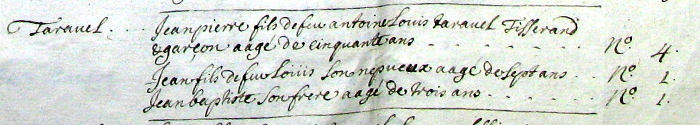 Taravel . . . Jean pierre fils de feu antoine Louis taravel Tisserand
& garçon aagé de cinquante ans . . . . . . N.º 4.
Jean fils de feu Louis son nepueux aagé de sept ans . . N.º 1.
Jean baptiste son frere aagé de trois ans . . . . . N.º 1.